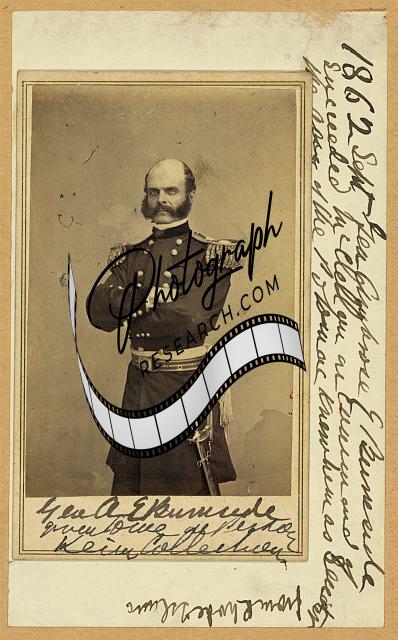 Photograph
RESEARCH.COM
Gen A E Burnside
given to me
Keim Collection
1862 Sept Gen Ambrose E Burnside
Succeeded McClellan in Command of
the Army of the Potomac
from Rhode Island